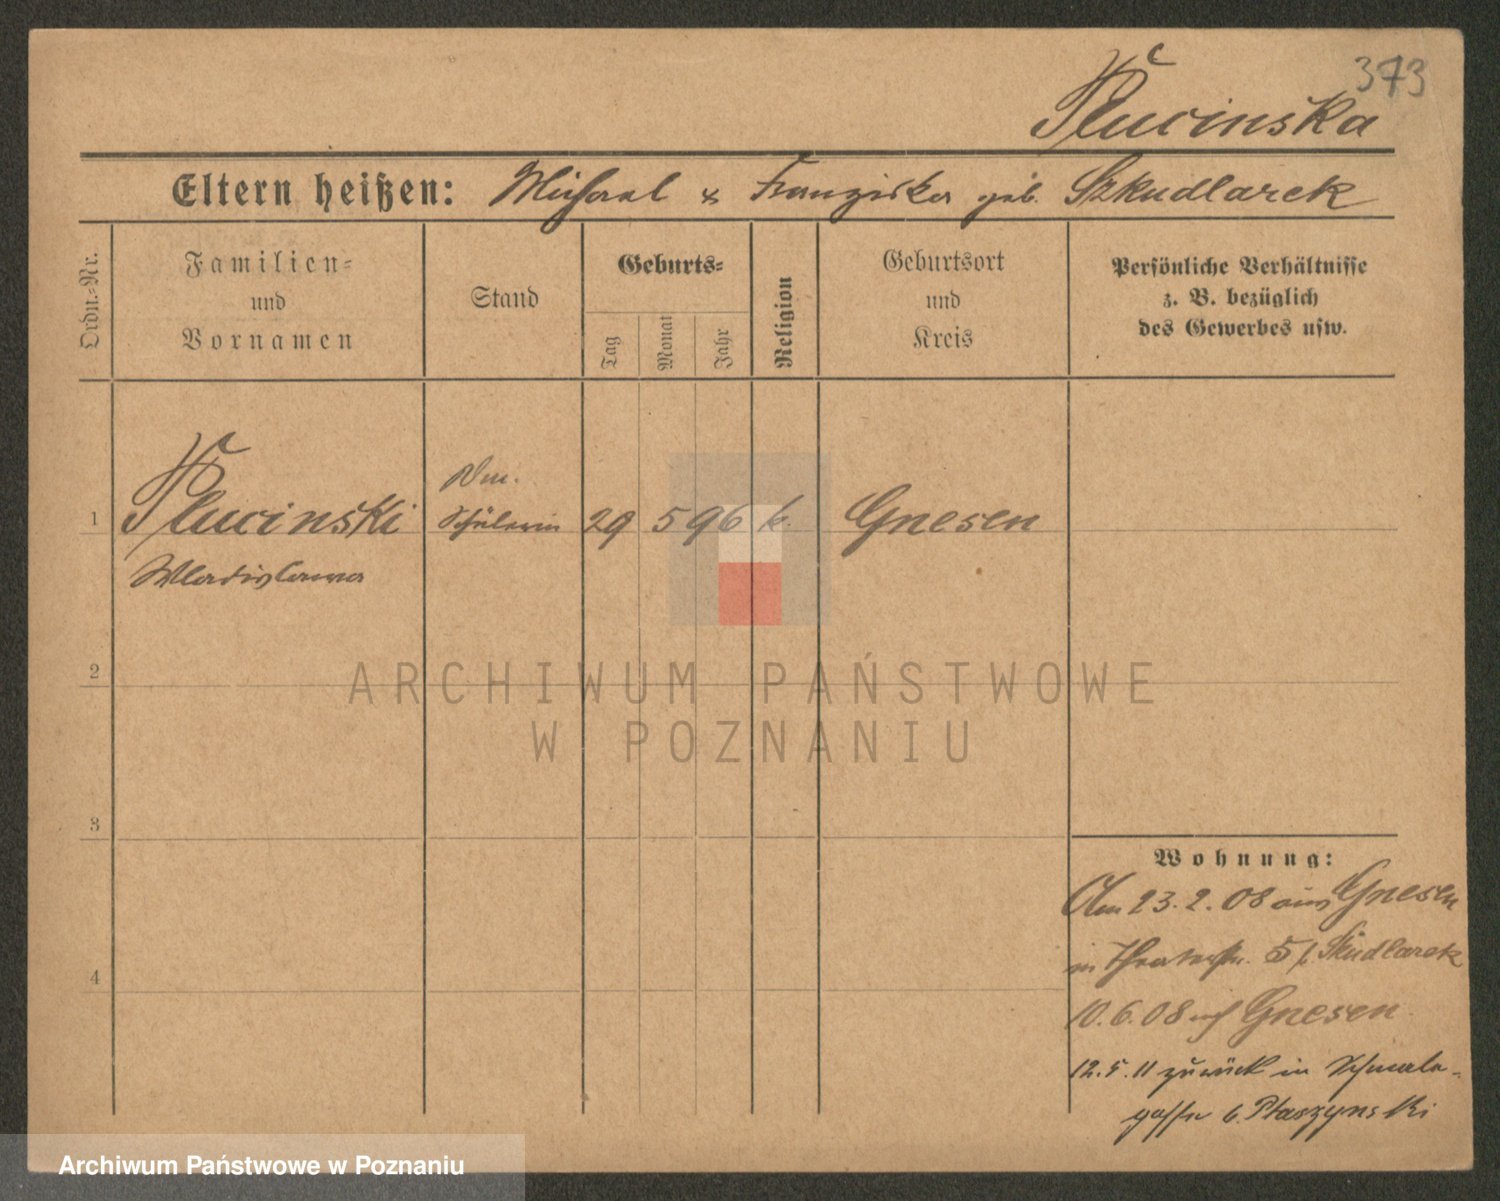 373
Plucinska
Eltern heißen: Michael & Franziska geb. Szkudlarek
Ordn.-Nr.
Familien-
und
Vornamen
Stand
Geburts-
Tag
Monat
Jahr
Religion
Geburtsort
und
Kreis
Persönliche Verhältnisse
z. B. bezüglich
des Gewerbes usw.
1 Plucinski Schülerin 29 5 96 k. Gnesen
Wladislawa
2
ARCHIWUM PAŃSTWOWE
W POZNANIU
3
Wohnung:
Am 23.2.08 aus Gnesen
in Theaterstr. 5 Skudlarek
4
10.6.08 auf Gnesen
12.5.11 zurück in Schmale-
gasse 6. Ptaszynski
Archiwum Państwowe w Poznaniu